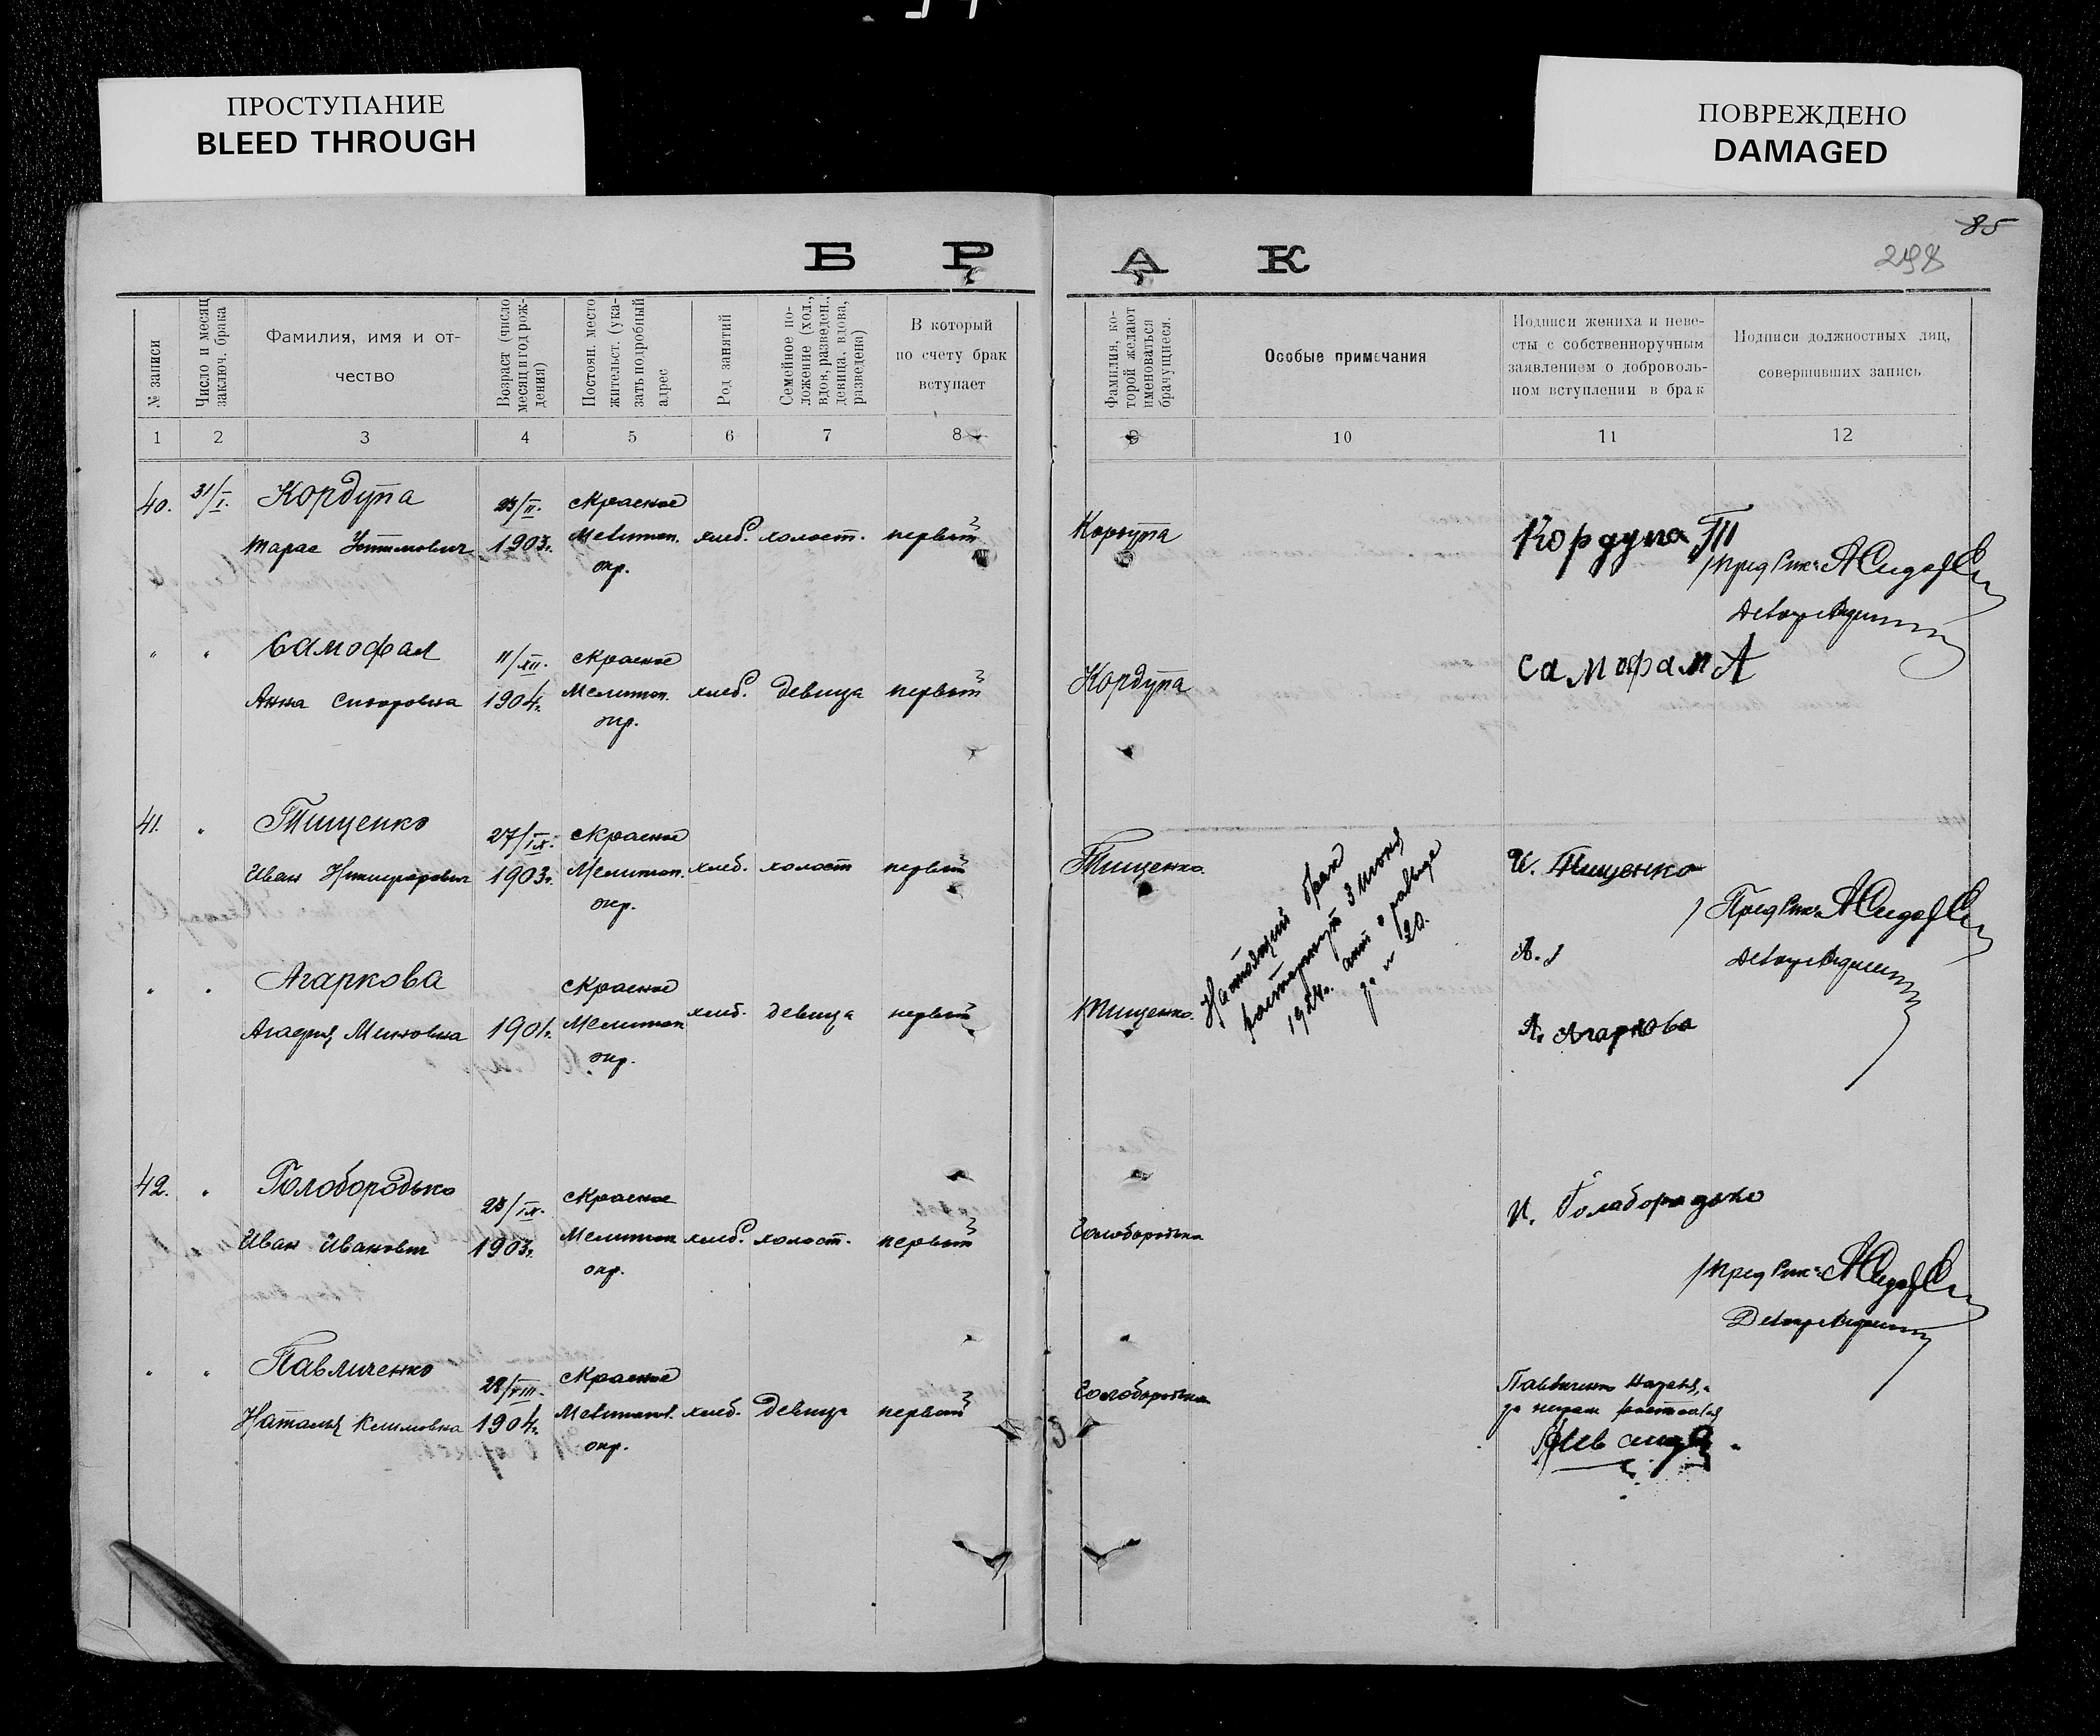 ПРОСТУПАНИЕ
BLEED THROUGH
ПОВРЕЖДЕНО
DAMAGED
85
298
БРАК
№ записи
Число и месяц
заключ. брака
Фамилия, имя и от-
чество
Возраст (число
месяц и год рож-
дения)
Постоян. место
жительст. (ука-
зать подробный
адрес
Род занятий
Семейное по-
ложение (хол.,
вдов, разведен.,
девица, вдова,
разведена)
В который
по счету брак
вступает
Фамилия, ко-
торой желают
именоваться
брачущиеся.
Особые примечания
Подписи жениха и неве-
сты с собственноручным
заявлением о доброволь-
ном вступлении в брак
Подписи должностных лиц,
совершивших запись
1 2 3 4 5 6 7 8 9 10 11 12
40. 31/I. Кордупа 23/II. с Красное
Тарас Устимович 1903г. Мелитоп. хлеб. холост. первый Кордупа Кордупа Т
окр.
Пред Рик
" " Самофал 11/XII. с Красное
Анна Сидоровна 1904г. Мелитоп. хлеб. девица первый Кордупа Самофал А
окр.
41. " Тищенко 27/IX. с Красное
Иван Никифорович 1903г. Мелитоп. хлеб. холост первый Тищенко. И. Тищенко
окр.
Пред Рик
Настоящий брак
расторгнут 3 июня
1924г. акт о разводе
за № 20.
" " Агаркова с Красное
Агафия Миновна 1901г. Мелитоп хлеб. девица первый Тищенко. А. Агаркова
окр.
42. " Голобородько 23/IX. с Красное
Иван Иванович 1903г. Мелитоп хлеб. холост. первый Голобородько И. Голабородько
окр.
Пред Рик
" " Павличенко 28/VIII. с Красное
Наталья Климовна 1904г. Мелитоп. хлеб. девица первый Голобородько
окр.